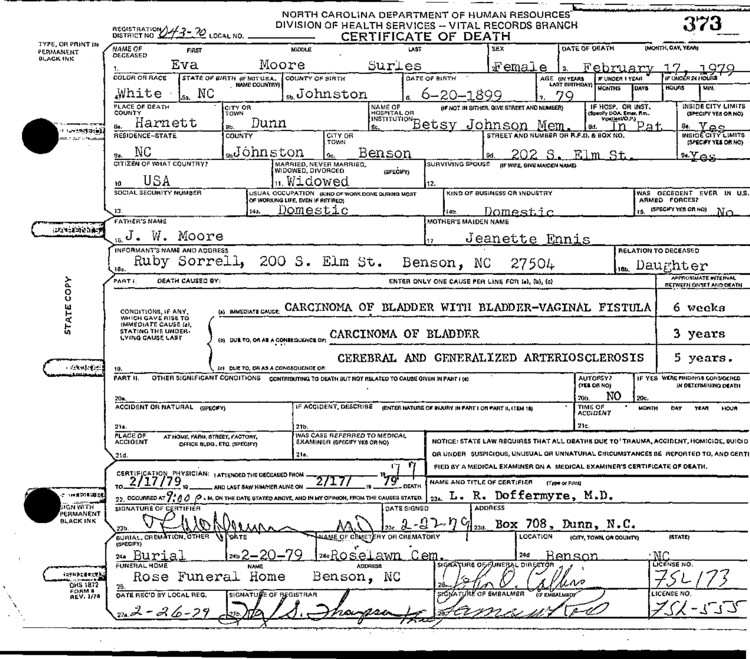 NORTH CAROLINA DEPARTMENT OF HUMAN RESOURCES
DIVISION OF HEALTH SERVICES – VITAL RECORDS BRANCH
CERTIFICATE OF DEATH
373
REGISTRATION DISTRICT NO. 043-70 LOCAL NO.
TYPE, OR PRINT IN PERMANENT BLACK INK
NAME OF DECEASED FIRST MIDDLE LAST SEX DATE OF DEATH (MONTH, DAY, YEAR)
1. Eva Moore Surles 2. Female 3. February 17, 1979
COLOR OR RACE STATE OF BIRTH (IF NOT U.S.A. NAME COUNTRY) COUNTY OF BIRTH DATE OF BIRTH AGE (IN YEARS LAST BIRTHDAY) IF UNDER 1 YEAR IF UNDER 24 HOURS
MONTHS DAYS HOURS MIN.
4. White 5a. NC 5b. Johnston 6. 6-20-1899 7. 79
PLACE OF DEATH COUNTY CITY OR TOWN NAME OF HOSPITAL OR INSTITUTION (IF NOT IN EITHER, GIVE STREET AND NUMBER) IF HOSP. OR INST. INSIDE CITY LIMITS (SPECIFY YES OR NO)
8a. Harnett 8b. Dunn 8c. Betsy Johnson Mem. 8d. In Pat 8e. Yes
RESIDENCE-STATE COUNTY CITY OR TOWN STREET AND NUMBER OR R.F.D. & BOX NO. INSIDE CITY LIMITS (SPECIFY YES OR NO)
9a. NC 9b. Johnston 9c. Benson 9d. 202 S. Elm St. 9e. Yes
CITIZEN OF WHAT COUNTRY? MARRIED, NEVER MARRIED, WIDOWED, DIVORCED (SPECIFY) SURVIVING SPOUSE (IF WIFE, GIVE MAIDEN NAME)
10 USA 11. Widowed 12.
SOCIAL SECURITY NUMBER USUAL OCCUPATION (KIND OF WORK DONE DURING MOST OF WORKING LIFE, EVEN IF RETIRED) KIND OF BUSINESS OR INDUSTRY WAS DECEDENT EVER IN U.S. ARMED FORCES? (SPECIFY YES OR NO)
13. 14a. Domestic 14b Domestic 15. No
FATHER'S NAME MOTHER'S MAIDEN NAME
16. J. W. Moore 17 Jeanette Ennis
INFORMANT'S NAME AND ADDRESS RELATION TO DECEASED
18a. Ruby Sorrell, 200 S. Elm St. Benson, NC 27504 18b. Daughter
PART I. DEATH CAUSED BY: ENTER ONLY ONE CAUSE PER LINE FOR (a), (b), (c) APPROXIMATE INTERVAL BETWEEN ONSET AND DEATH
CONDITIONS, IF ANY, WHICH GAVE RISE TO IMMEDIATE CAUSE (a), STATING THE UNDERLYING CAUSE LAST
(a) IMMEDIATE CAUSE: CARCINOMA OF BLADDER WITH BLADDER-VAGINAL FISTULA 6 weeks
(b) DUE TO, OR AS A CONSEQUENCE OF: CARCINOMA OF BLADDER 3 years
CEREBRAL AND GENERALIZED ARTERIOSCLEROSIS 5 years.
19. (c) DUE TO, OR AS A CONSEQUENCE OF
STATE COPY
PART II. OTHER SIGNIFICANT CONDITIONS CONTRIBUTING TO DEATH BUT NOT RELATED TO CAUSE GIVEN IN PART I (a) AUTOPSY? (YES OR NO) IF YES WERE FINDINGS CONSIDERED IN DETERMINING DEATH
20a. 20b. NO 20c.
ACCIDENT OR NATURAL (SPECIFY) IF ACCIDENT, DESCRIBE (ENTER NATURE OF INJURY IN PART I OR PART II, ITEM 18) TIME OF ACCIDENT MONTH DAY YEAR HOUR
21a. 21b. 21c.
PLACE OF ACCIDENT AT HOME, FARM, STREET, FACTORY, OFFICE BLDG., ETC. (SPECIFY) WAS CASE REFERRED TO MEDICAL EXAMINER (SPECIFY YES OR NO)
21d. 21e.
NOTICE: STATE LAW REQUIRES THAT ALL DEATHS DUE TO TRAUMA, ACCIDENT, HOMICIDE, SUICID
OR UNDER SUSPICIOUS, UNUSUAL OR UNNATURAL CIRCUMSTANCES BE REPORTED TO, AND CERTI
FIED BY A MEDICAL EXAMINER ON A MEDICAL EXAMINER'S CERTIFICATE OF DEATH.
CERTIFICATION PHYSICIAN: I ATTENDED THE DECEASED FROM 19 77
TO 2/17/79 19 AND LAST SAW HIM/HER ALIVE ON 2/17/ 19 79 DEATH
22. OCCURRED AT 9:00 P .M. ON THE DATE STATED ABOVE, AND IN MY OPINION, FROM THE CAUSES STATED.
NAME AND TITLE OF CERTIFIER (Type or Print)
23a. L. R. Doffermyre, M.D.
SIGN WITH PERMANENT BLACK INK
SIGNATURE OF CERTIFIER DATE SIGNED ADDRESS
23b. M.D 23c. 2-22-79 23d. Box 708, Dunn, N.C.
BURIAL, CREMATION, OTHER (SPECIFY) DATE NAME OF CEMETERY OR CREMATORY LOCATION (CITY, TOWN, OR COUNTY) (STATE)
24a Burial 24b 2-20-79 24c Roselawn Cem. 24d Benson NC
FUNERAL HOME NAME ADDRESS SIGNATURE OF FUNERAL DIRECTOR LICENSE NO.
25. Rose Funeral Home Benson, NC 26. John O. Collins 7SL173
DHS 1872
FORM 8
REV. 1/78
DATE REC'D BY LOCAL REG. SIGNATURE OF REGISTRAR SIGNATURE OF EMBALMER (IF EMBALMED) LICENSE NO.
27a. 2-26-79 27b. 7SL-555